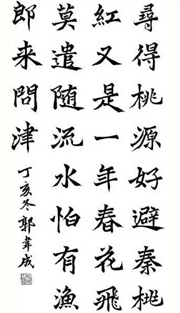 尋得桃源好避秦桃
紅又是一年春花飛
莫遣随流水怕有漁
郎来問津
丁亥冬郭韋成